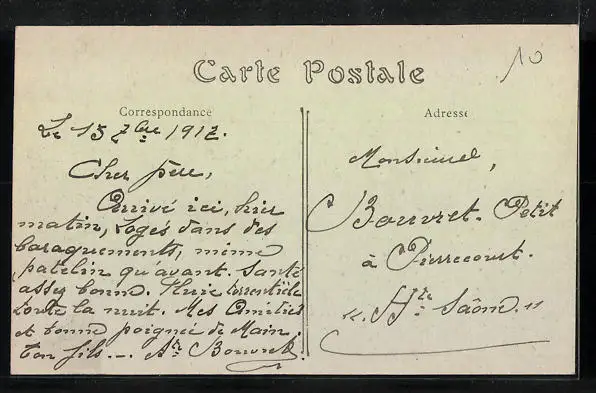 Carte Postale
10
Correspondance
Adresse
Le 15 7bre 1912.
Cher père,
Arrivé ici, hier
matin, logés dans des
baraquements, même
patelin qu'avant. Santé
assez bonne. Pluie torrentielle
toute la nuit. Mes Amitiés
et bonne poignée de Main.
Ton fils -.- Bouvret
Monsieur,
Bouvret. Petit
à Pierrecourt.
". Hte Saône."